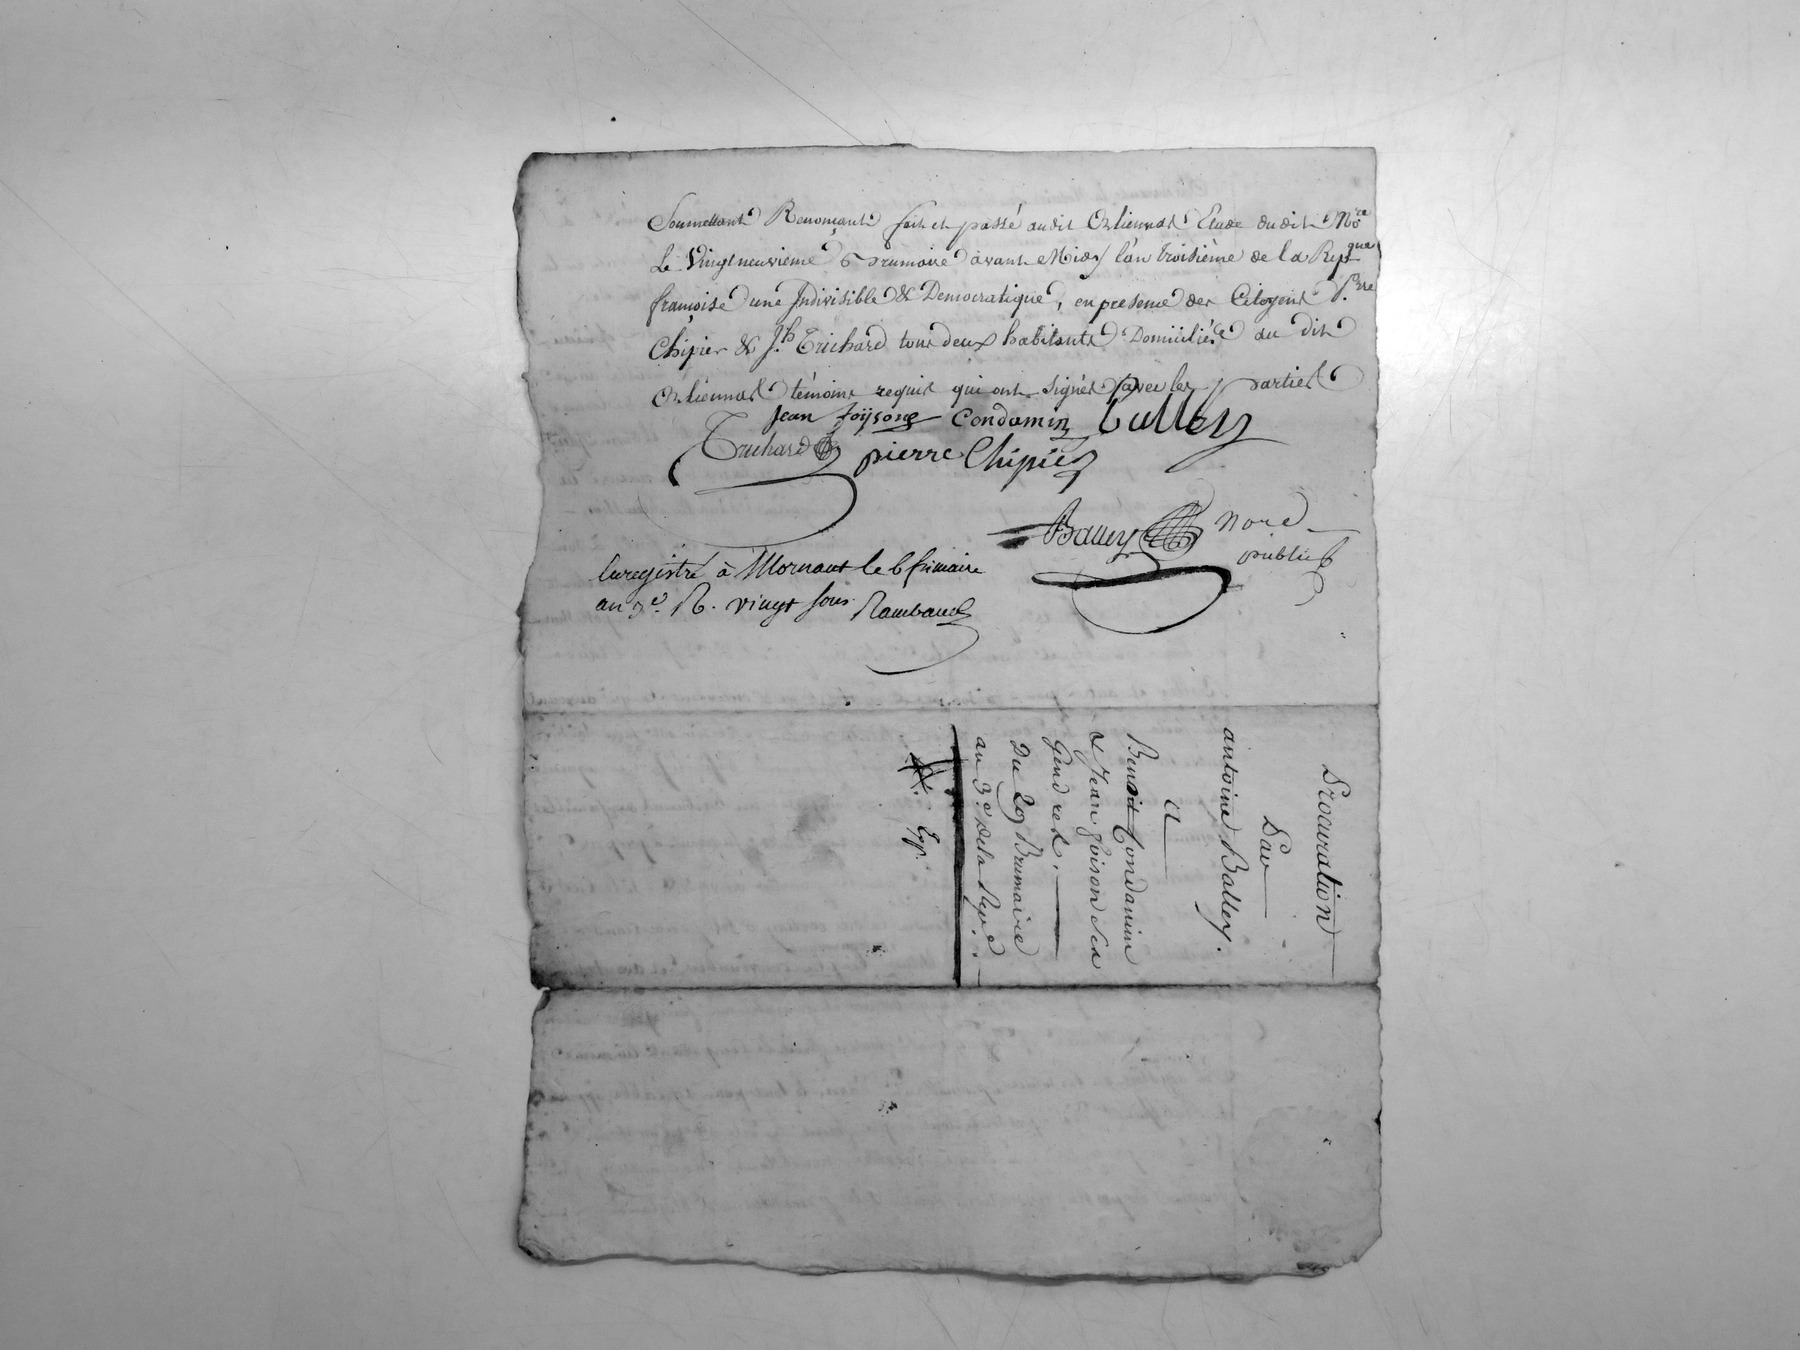 Soumettant Renonçant fait et passé audit Orliennas Etude dudit Nre
Le Vingt neuvieme Brumaire avant Midy l'an troisième de la Repque
françoise une Indivisible & Democratique, en presence des Citoyens Prre
Chipier & Jh Trichard tous deux habitants Domiciliés au dit
Orliennas témoins requis qui ont signés avec les parties
Jean foijsong Condamin balley
Trichard pierre Chipier
Balley Nore
public
Enregistré à Mornant le 6 frimaire
an 3e. R. vingt sous Rambaud
Procuration
Par
antoine Balley.
a
Benoit Condamin
& Jean foison ses
Gendres.
Du 29 Brumaire
an 3e. de la Repe.
Exp.